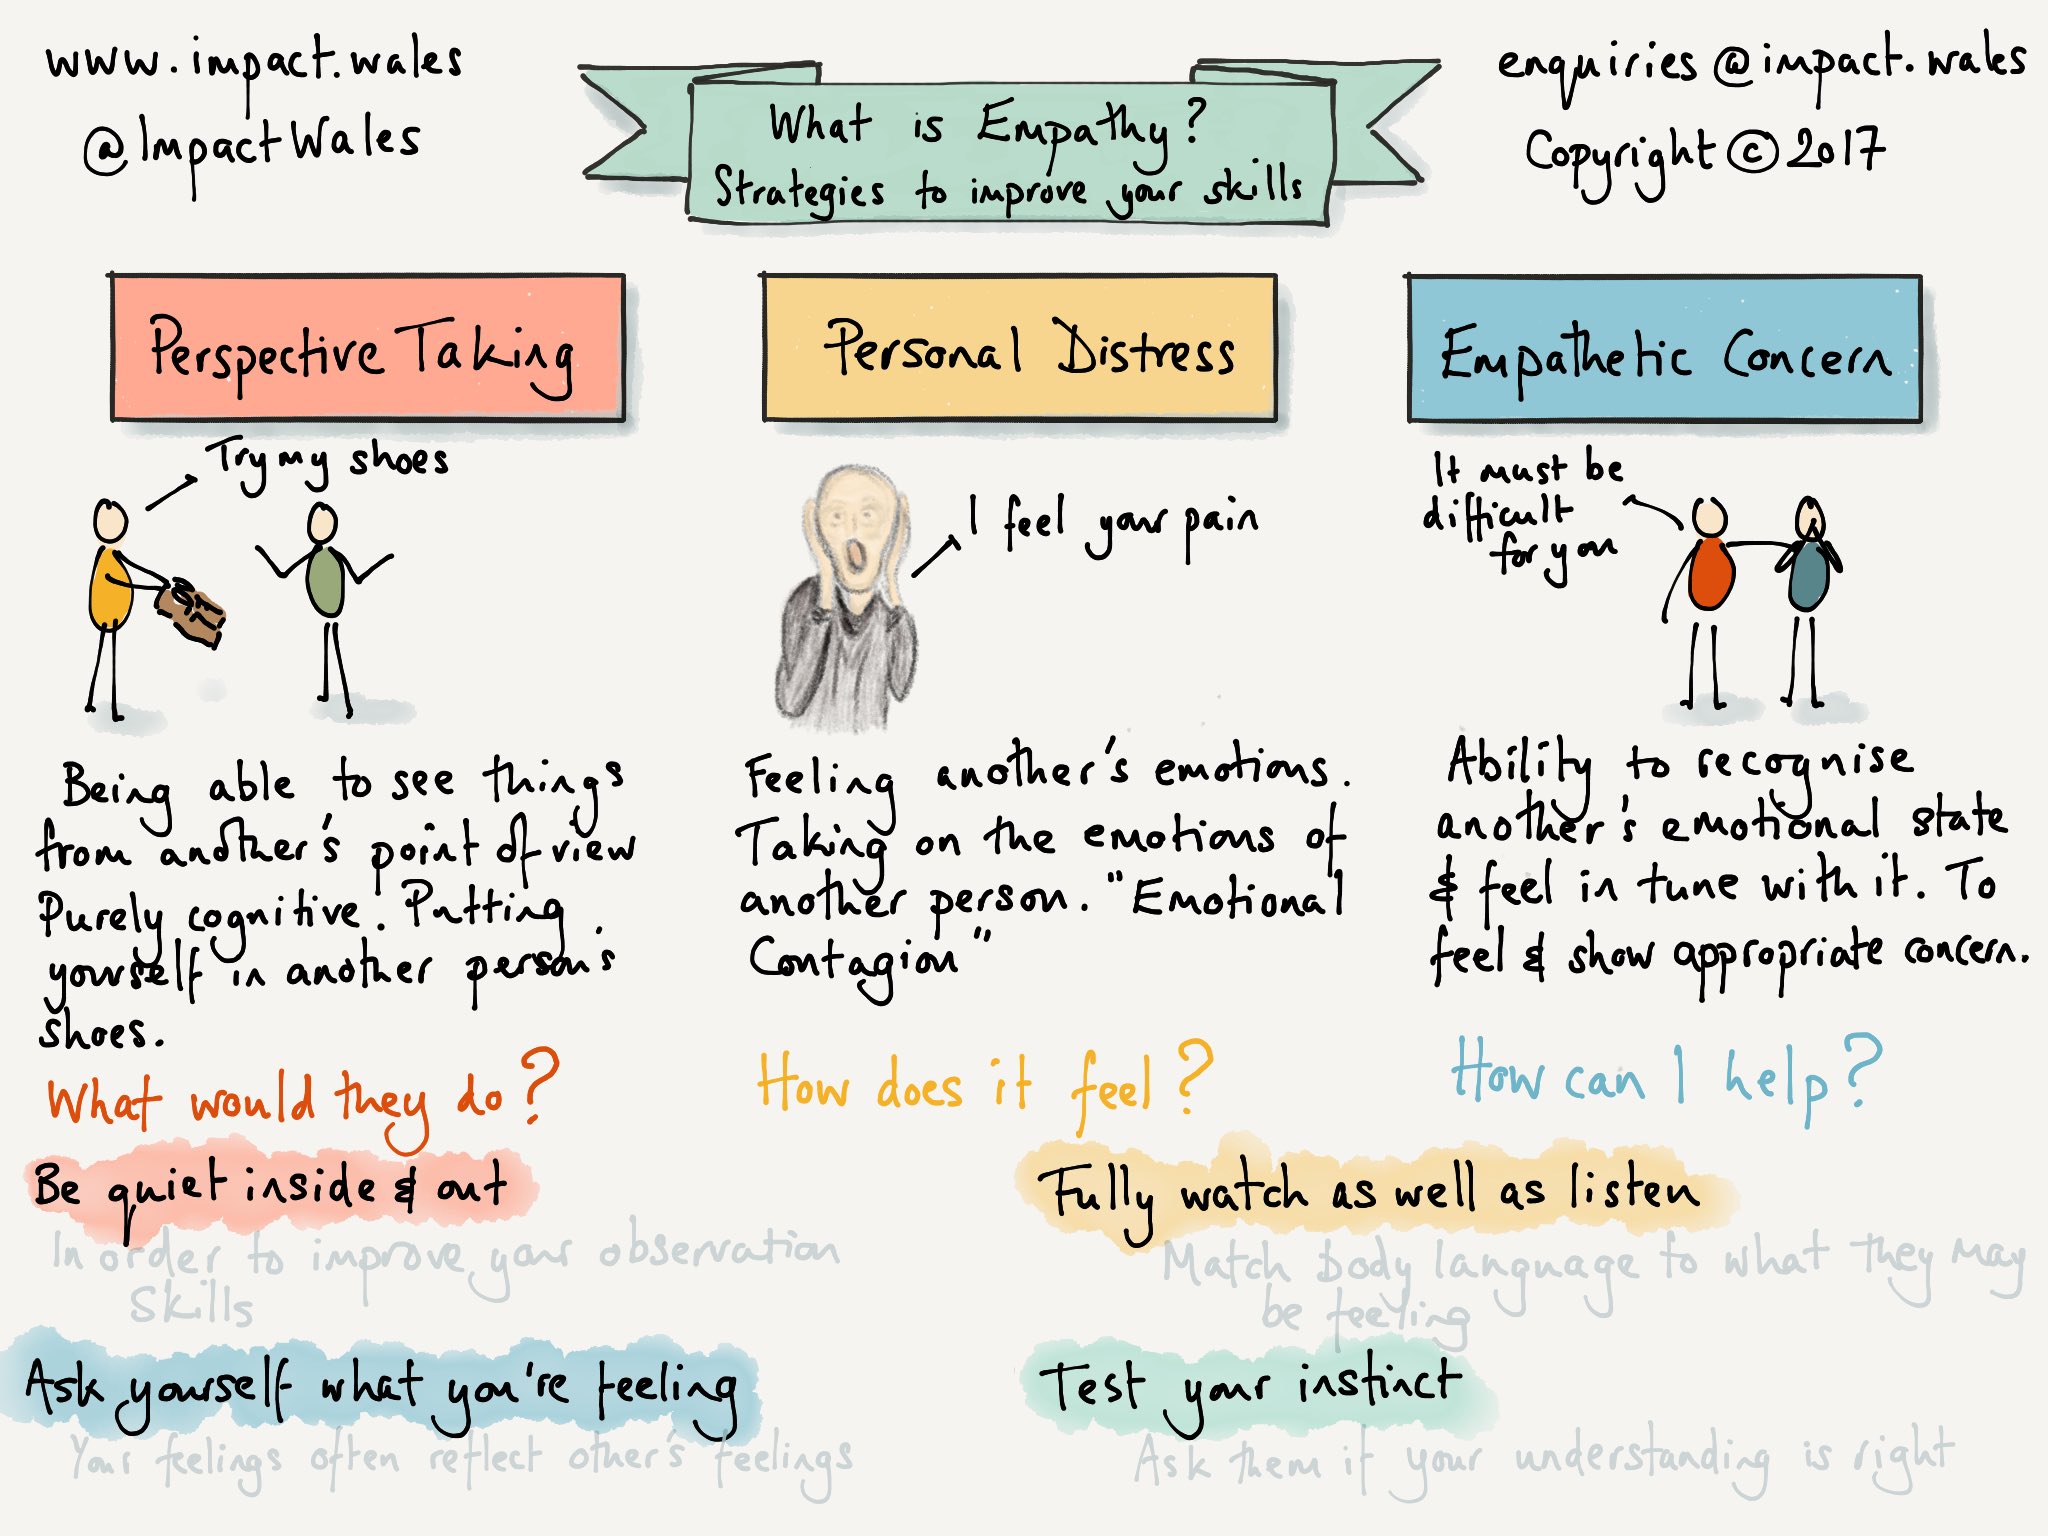 www.impact.wales
@ImpactWales
What is Empathy?
Strategies to improve your skills
enquiries@impact.wales
Copyright © 2017
Perspective Taking
Try my shoes
Being able to see things
from another's point of view
Purely cognitive. Putting
yourself in another person's
shoes.
What would they do?
Personal Distress
I feel your pain
Feeling another's emotions.
Taking on the emotions of
another person. "Emotional
Contagion"
How does it feel?
Empathetic Concern
It must be
difficult
for you
Ability to recognise
another's emotional state
& feel in tune with it. To
feel & show appropriate concern.
How can I help?
Be quiet inside & out
In order to improve your observation
Skills
Fully watch as well as listen
Match body language to what they may
be feeling
Ask yourself what you're feeling
Your feelings often reflect other's feelings
Test your instinct
Ask them if your understanding is right